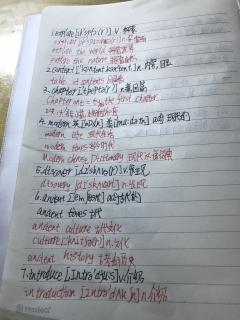 1.explore [ɪkˈsplɔː(r)] v. 探索
explore the world 探索世界
explore the nature 探索自然
2.content [ˈkɒntent] n. 内容,目录
table of contents 目录
3.chapter [ˈtʃæptə(r)] n.章,回
Chapter one = the first chapter
4.modern 英[ˈmɒdn] 美[ˈmɑːdərn] adj 现代的
modern life 现代生活
modern times 现代
Modern Chinese Dictionary 现代汉语词典
5.discover [dɪˈskʌvə(r)] v.发现
discovery [dɪˈskʌvəri] n.发现
6.ancient [ˈeɪnʃənt] adj 古代的
ancient times 古代
ancient culture 古代文化
culture [ˈkʌltʃə(r)] n.文化
ancient history 古代历史
7.introduce [ˌɪntrəˈdjuːs] v.介绍
introduction [ˌɪntrəˈdʌkʃn] n.介绍